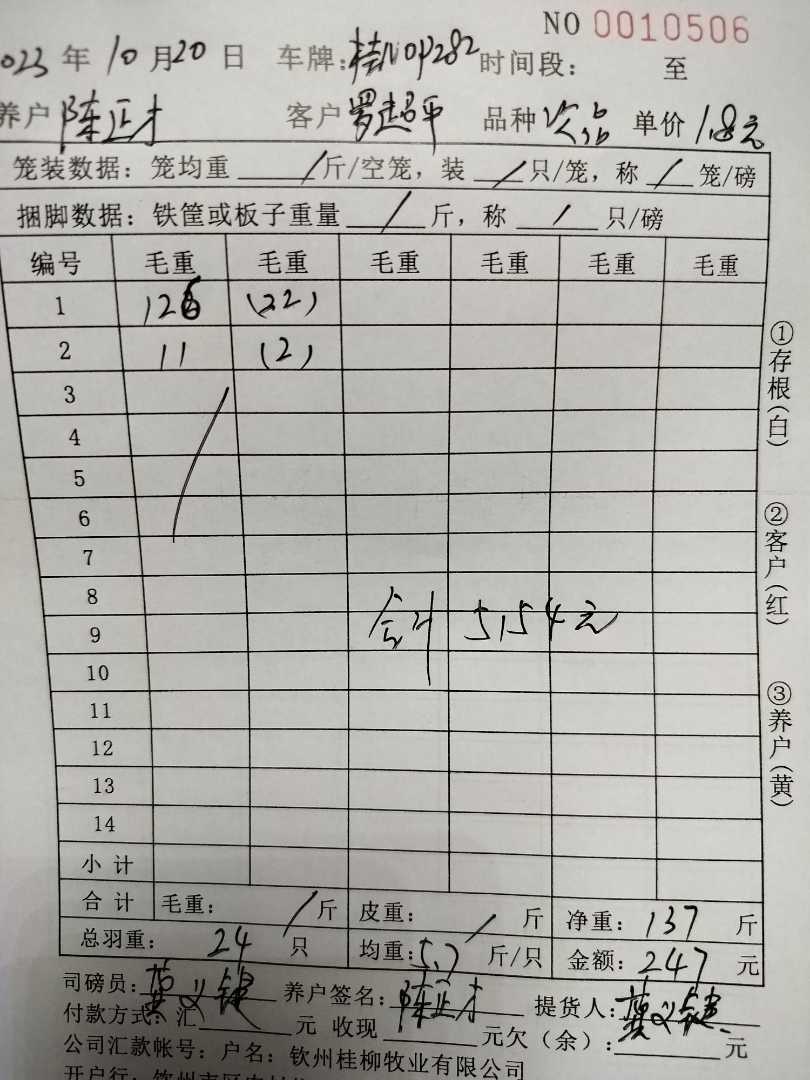 NO 0010506
2023 年 10 月 20 日 车牌: 桂N0P282 时间段: 至
养户 陈正才 客户 罗超平 品种 次品 单价 1.8元
笼装数据: 笼均重 / 斤/空笼, 装 / 只/笼, 称 / 笼/磅
捆脚数据: 铁筐或板子重量 / 斤, 称 / 只/磅
编号 毛重 毛重 毛重 毛重 毛重 毛重
1 126 (22)
2 11 (2)
3
4
5
6
7
8
9
合计 5154元
10
11
12
13
14
小计
合计 毛重: / 斤 皮重: / 斤 净重: 137 斤
总羽重: 24 只 均重: 5.7 斤/只 金额: 247 元
司磅员: 养户签名: 陈正才 提货人:
付款方式: 汇 元 收现 元欠(余): 元
公司汇款帐号: 户名: 钦州桂柳牧业有限公司
开户行: 钦州市区农村
①存根(白)
②客户(红)
③养户(黄)